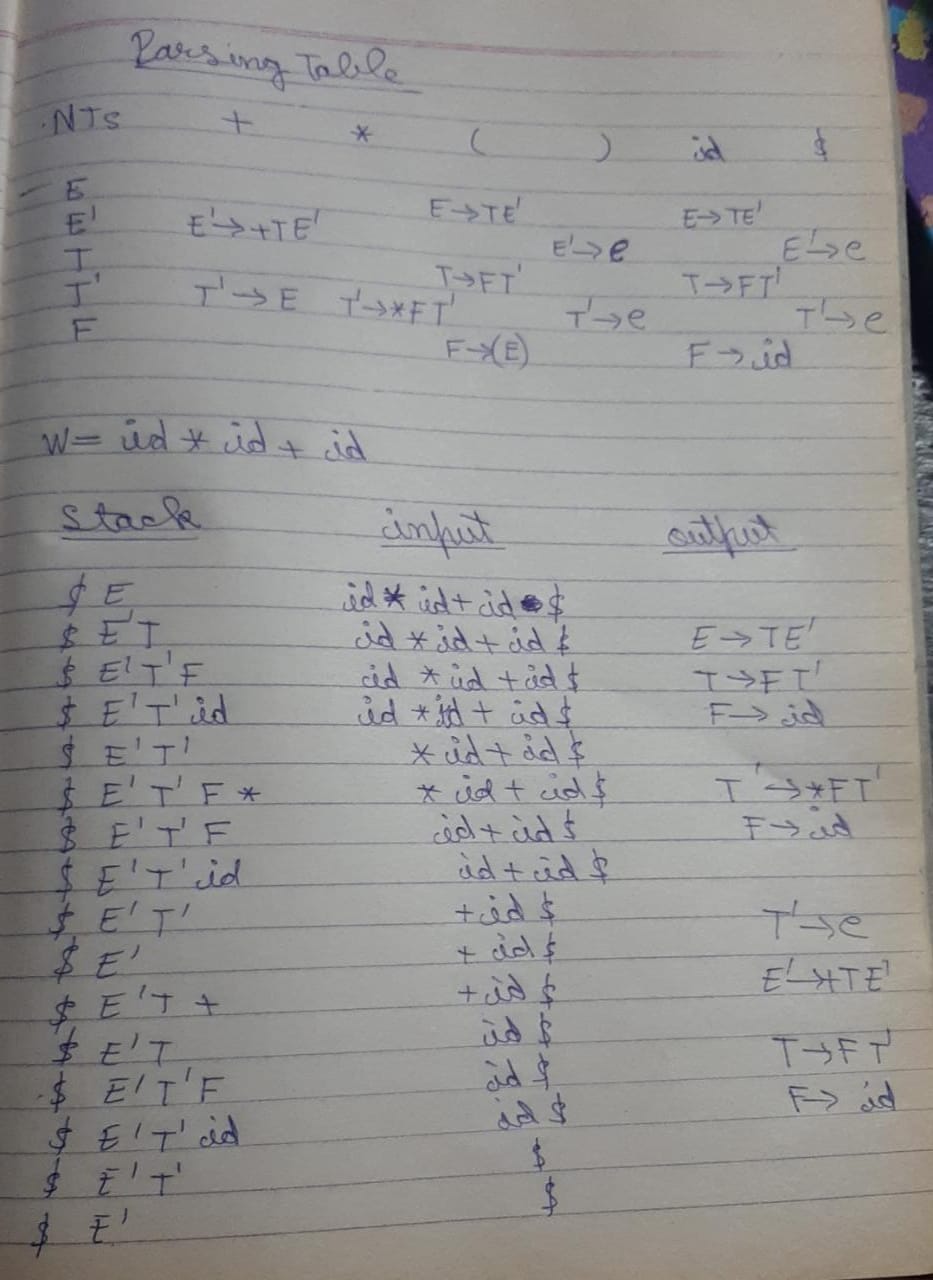 Parsing Table
NTs + * ( ) id $
E E→TE' E→TE'
E' E'→+TE' E'→e E'→e
T T→FT' T→FT'
T' T'→E T'→*FT' T'→e T'→e
F F→(E) F→id
W= id * id + id
Stack input output
$ E id * id + id $
$ E'T id * id + id $ E→TE'
$ E'T'F id * id + id $ T→FT'
$ E'T'id id * id + id $ F→id
$ E'T' * id + id $
$ E'T'F* * id + id $ T'→*FT'
$ E'T'F id + id $ F→id
$ E'T'id id + id $
$ E'T' + id $ T'→e
$ E' + id $
$ E'T+ + id $ E'→+TE'
$ E'T id $ T→FT'
$ E'T'F id $ F→id
$ E'T'id id $
$ E'T' $
$ E' $